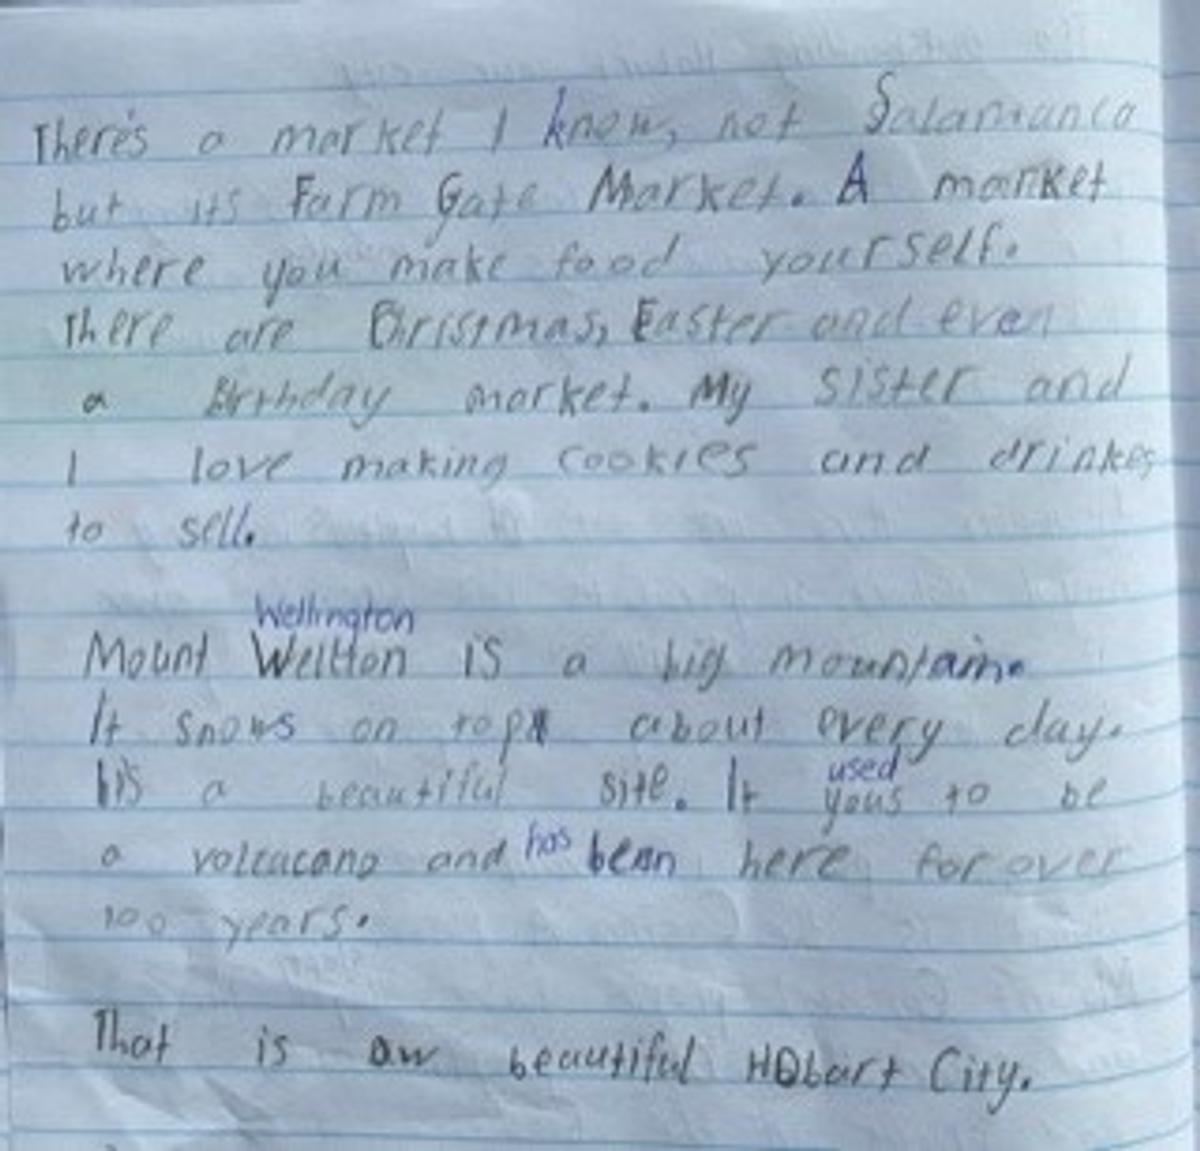 There's a market I know, not Salamanca
but its Farm Gate Market. A market
where you make food yourself.
There are Christmas, Easter and even
a Birthday market. My sister and
I love making cookies and drinkes
to sell.
Wellington
Mount Wellton is a big mountain.
It snows on top about every day.
It's a beautiful site. It yous to be
used
a volcucano and has bean here for over
100 years.
That is ow beautiful HObart City.